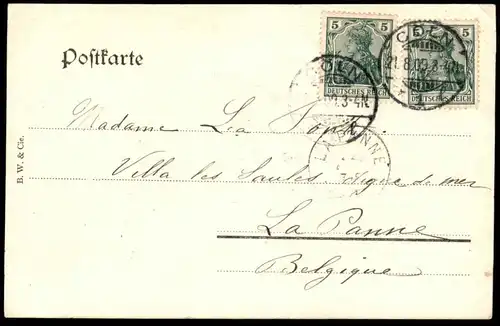 Postkarte
5 5
DEUTSCHES REICH
5 5
DEUTSCHES REICH
CÖLN
3-4N.
CÖLN
21.8.02.3-4N.
LA PANNE
Madame Léa
Villa les Saules digue de mer
La Panne
Belgique
B. W. & Cie.